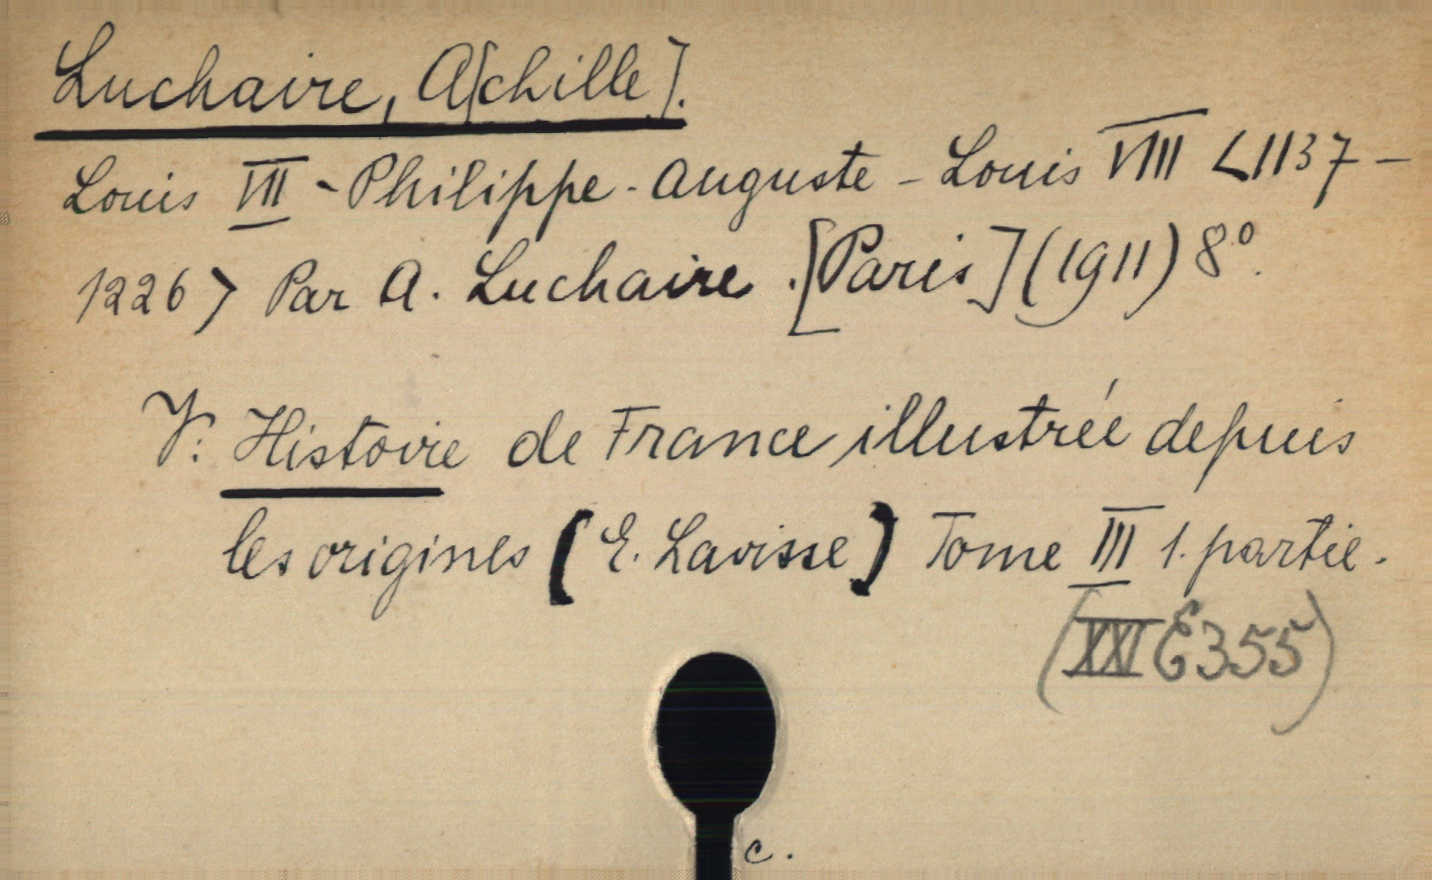 Luchaire, A[chille].
Louis VII - Philippe-Auguste - Louis VIII <1137-
1226> Par A. Luchaire. [Paris] (1911) 8º.
V: Histoire de France illustrée depuis
les origines (E. Lavisse) Tome III 1. partie.
(XXI E 355)
c.